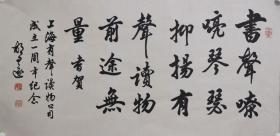 書聲嘹
喨琴瑟
抑揚有
聲讀物
前途無
量者賀
上海有聲讀物公司
成立一周年紀念
胡問遂